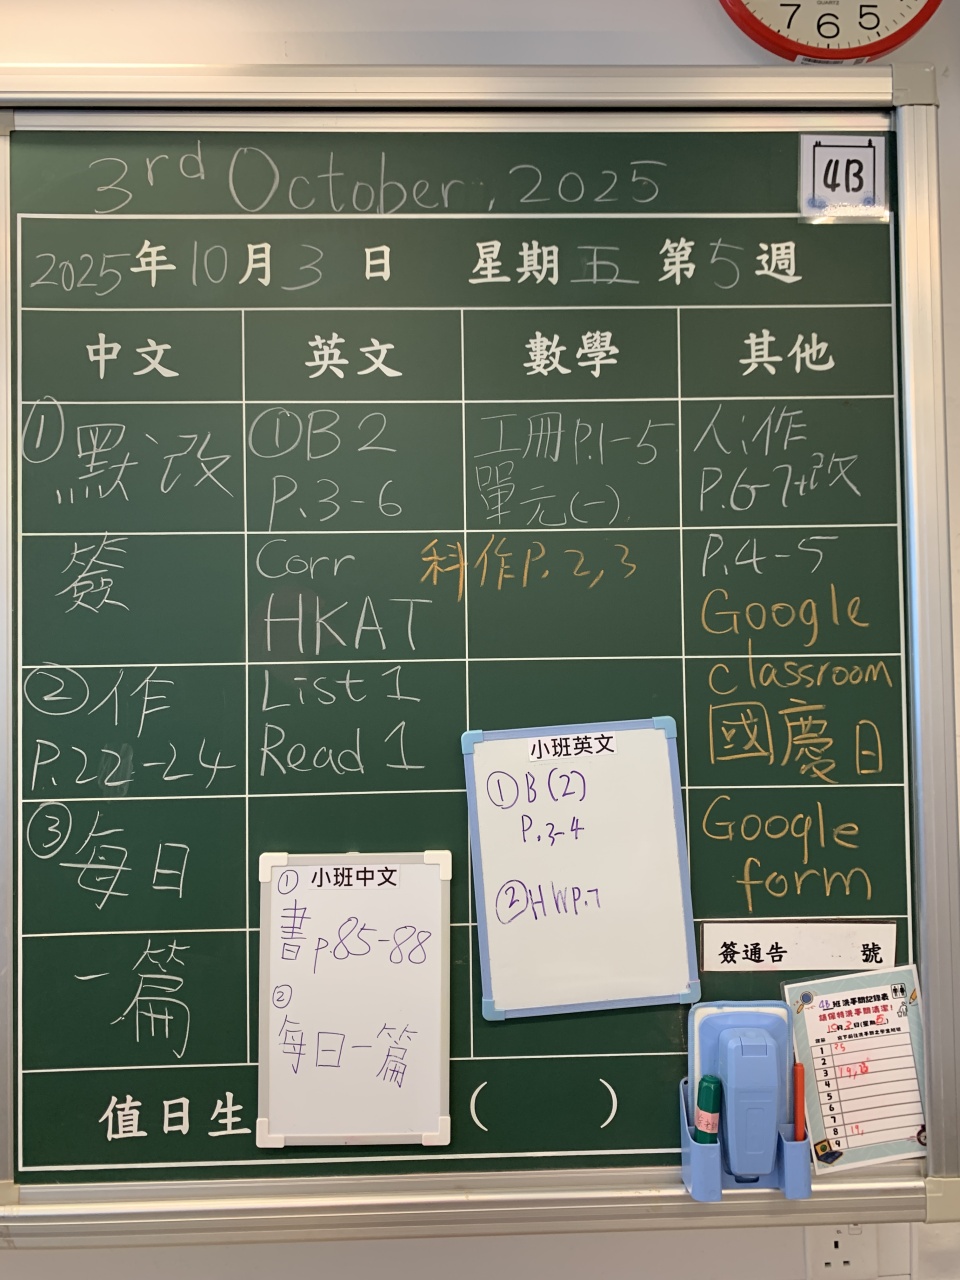 QUARTZ
7 6 5
3rd October, 2025
4B
2025年10月3日 星期五 第5週
中文 英文 數學 其他
①默改
簽
②作
P.22-24
③每日
一篇
①B2
P.3-6
Corr
HKAT
List 1
Read 1
工冊P.1-5
單元(一)
科作P.2,3
人作
P.6-7+改
P.4-5
Google
classroom
國慶日
Google
form
小班英文
①B(2)
P.3-4
②HWP.7
小班中文
①
書p.85-88
②
每日一篇
簽通告 號
4B班洗手間記錄表
請保持洗手間清潔!
10月3日(星期5)
1 25
2
3 19,
4
5
6
7
8 19,
9
值日生 ( )